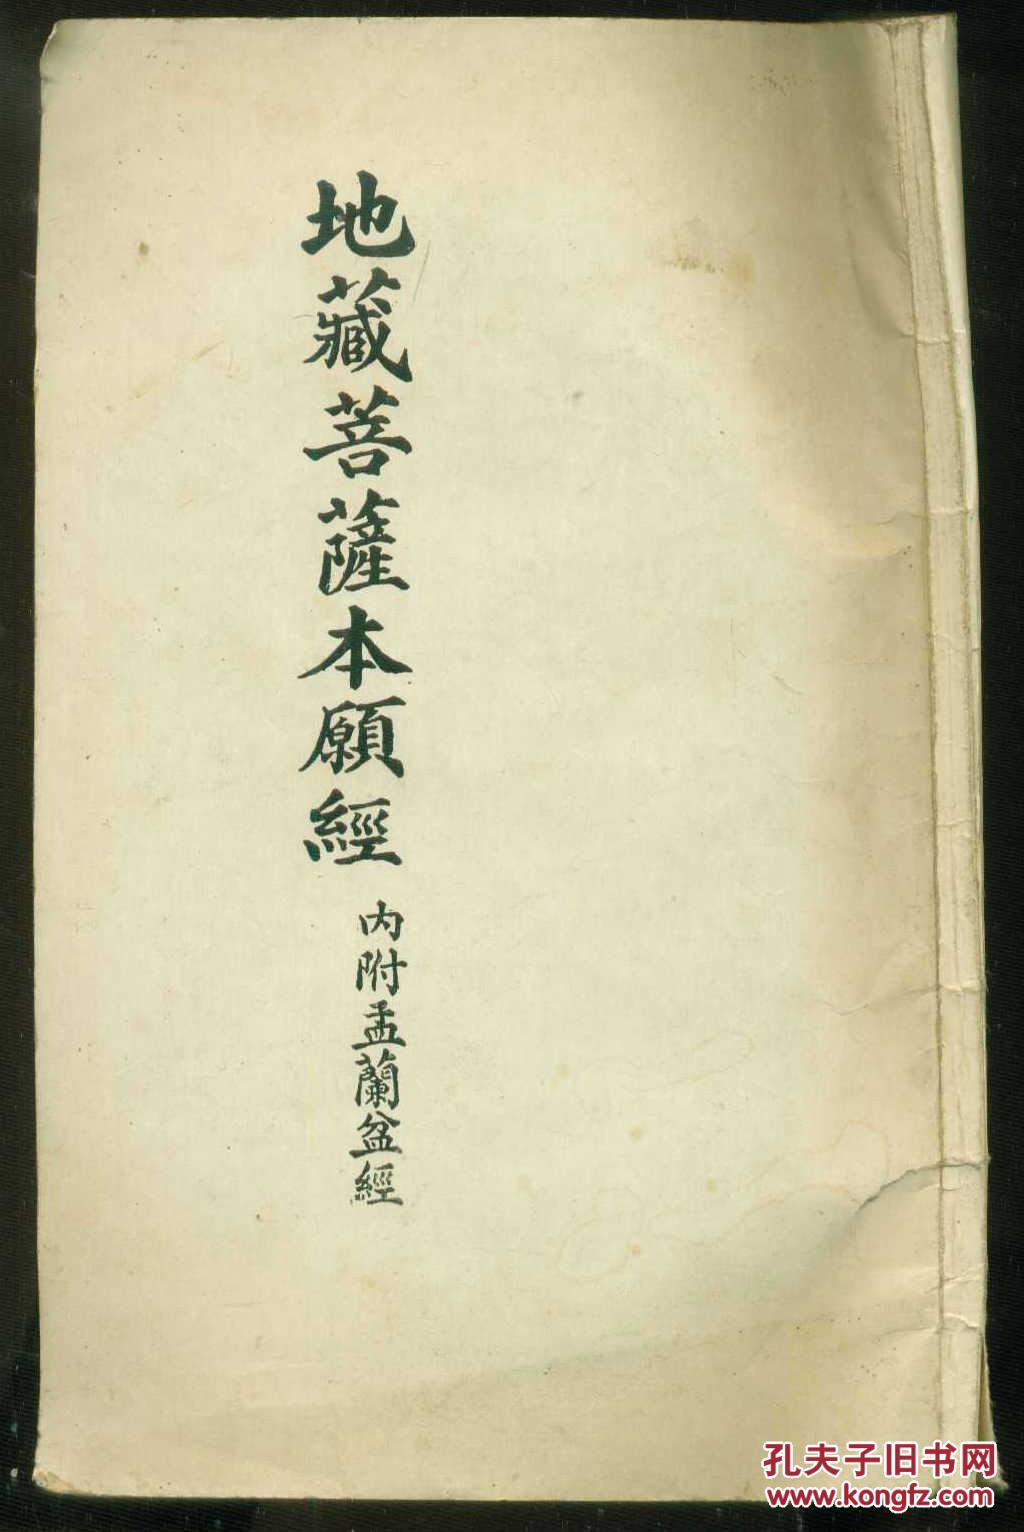 地藏菩薩本願經
內附盂蘭盆經
孔夫子旧书网
www.kongfz.com